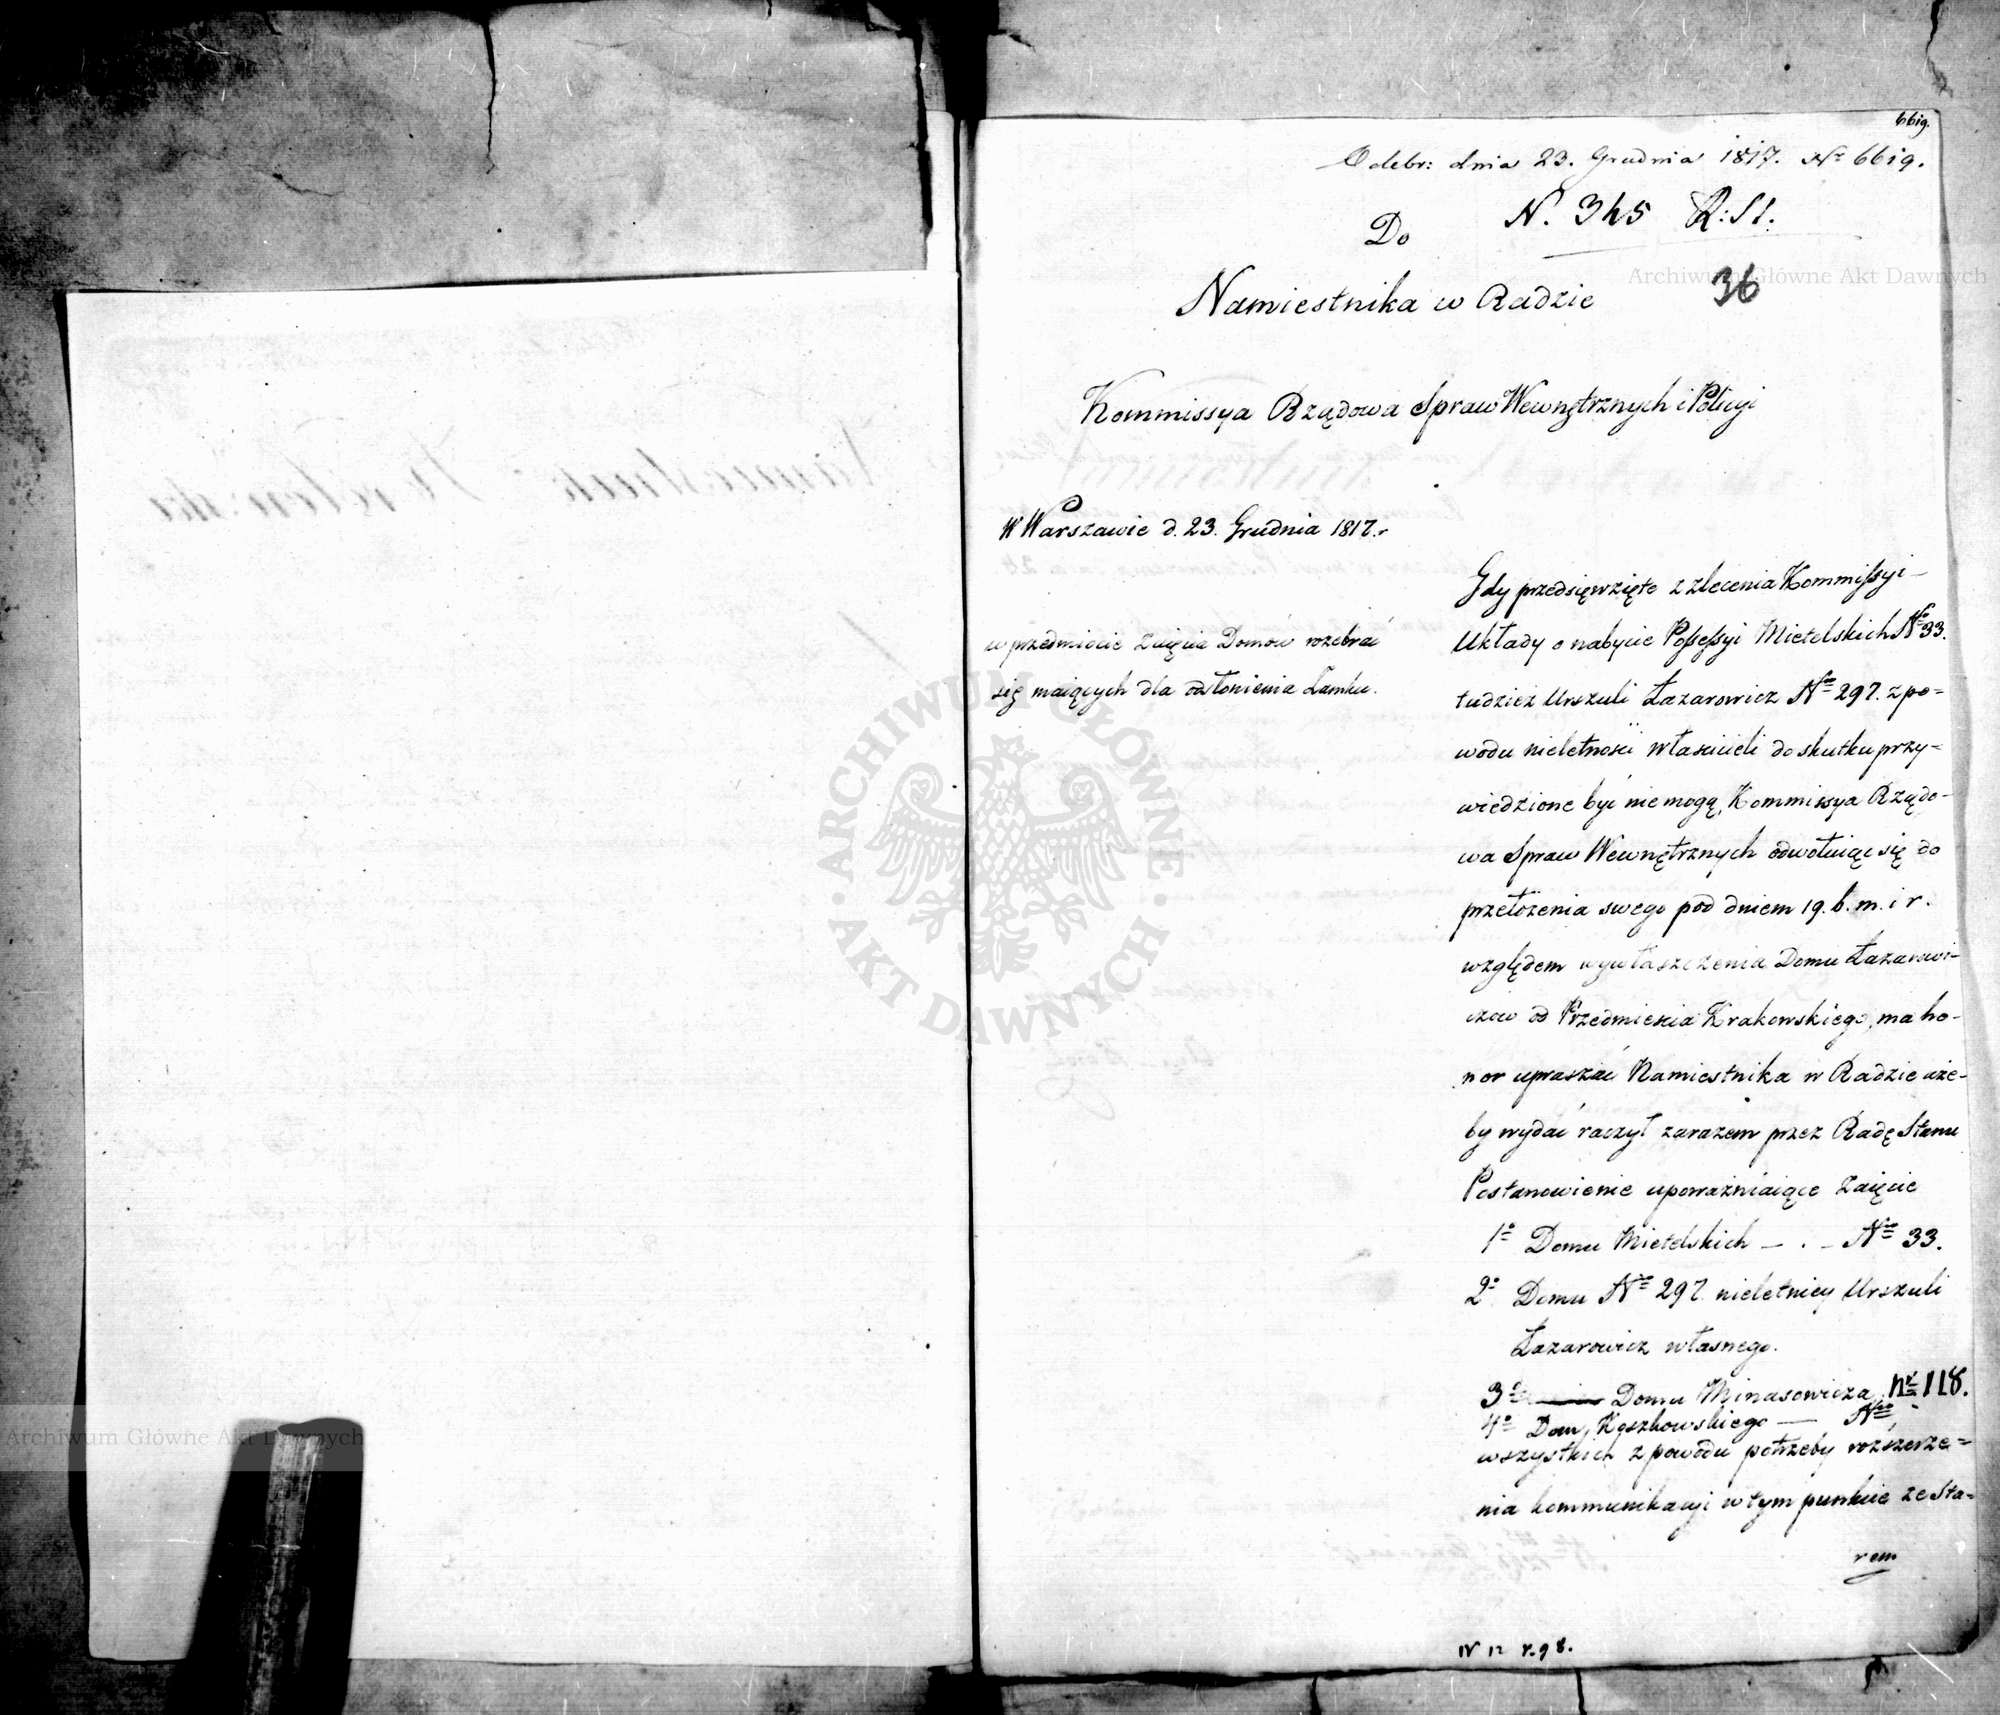 6619.
Odebr: dnia 23. Grudnia 1817. Nr 6619.
N. 345 R: St:
Do
Archiwum Główne Akt Dawnych
36
Namiestnika w Radzie
Kommissya Rządowa Spraw Wewnętrznych i Policyi
W Warszawie d. 23. Grudnia 1817.r
w przedmiocie zaięcia Domów rozebrać
się maiących dla odsłonienia Zamku.
Gdy przedsięwzięte z zlecenia Kommissyi
układy o nabycie Possessyi Mietelskich No 33.
tudzież Urszuli Łazarowicz Nro 297. z po=
wodu nieletności właścicieli do skutku przy=
wiedzione być nie mogą, Kommissya Rządo-
wa Spraw Wewnętrznych odwołuiąc się do
przełożenia swego pod dniem 19. b. m. i r.
względem wywłaszczenia Domu Łazarowi-
czow od Przedmieścia Krakowskiego, ma ho-
nor upraszać Namiestnika w Radzie aże-
by wydać raczył zarazem przez Radę Stanu
Postanowienie upoważniaiące Zaięcie
1o Domu Mietelskich — . – Nro 33.
2o Domu Nro 297. nieletniey Urszuli
Łazarowicz własnego.
3o Domu Minasowicza Nr 118.
4o Domu Koszkowskiego — Nro
wszystkich z powodu potrzeby rozszerze=
nia kommunikacyi w tym punkcie ze Sta=
rem
IV 12 r. 98.
ARCHIWUM GŁÓWNE
AKT DAWNYCH
Archiwum Główne Akt Dawnych